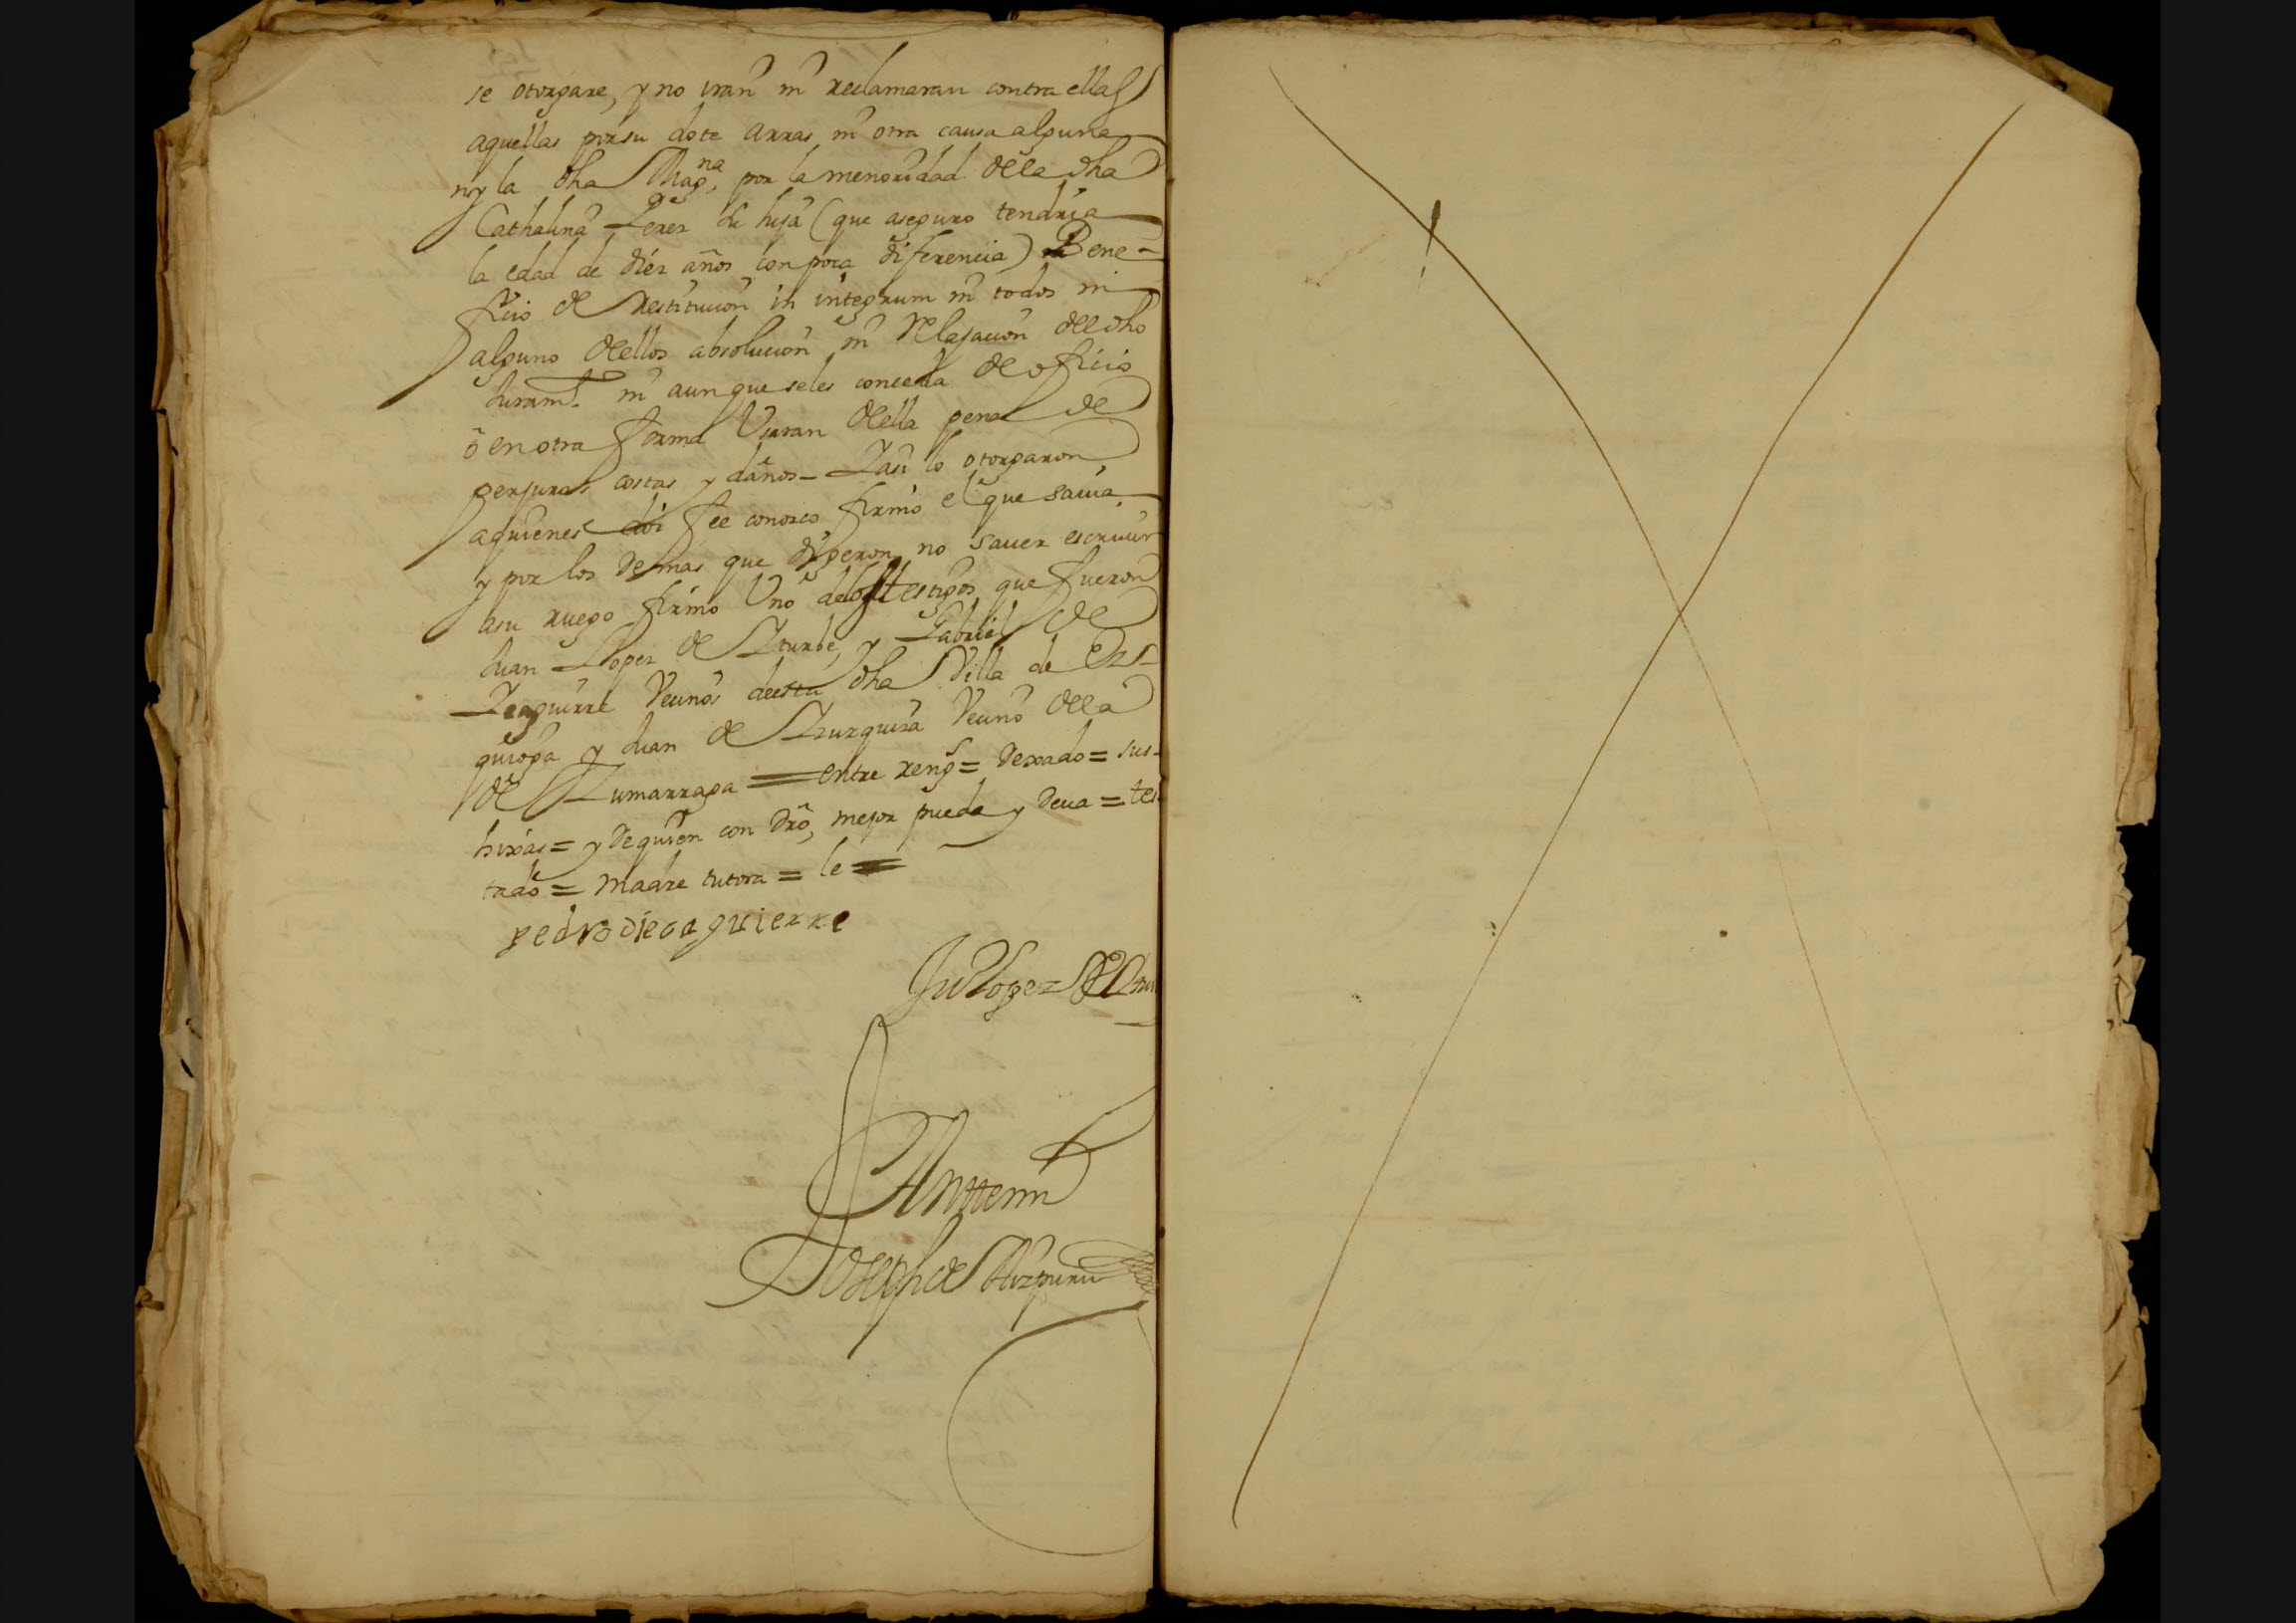 se otorgare, y no iran ni reclamaran contra ellas
aquellas por su dote arras ni otra causa alguna
ny la dha Mag.na por la menoridad de la dha
Cathalina Perez su hija (que aseguro tendria
la edad de diez años con poca diferencia) Bene-
ficio de Restitucion in integrum ni todos ni
alguno dellos absolucion ni Relajacion del dho
Juram.to ni aunque se les conceda de oficio
ô en otra forma Usaran della pena de
perjuros costas y daños - Y asi lo otorgaron
a quienes doi fee conozco firmo el que savia
y por los demas que dijeron no saver escriuir
a su ruego firmo Uno de los testigos que fueron
Juan Lopez de Yturbe, y Gabriel de
Yzaguirre Vecinos de esta dha Villa de Ez-
quioga y Juan de Vecino de la
de Zumarraga = entre reng.s = Dexado = sus-
hixas = y de quien con dro, mejor pueda y deua = tes-
tado = Madre tutora = le =
pedro de
Ju Lopez de
Ante mi
Joseph de Aizpuru